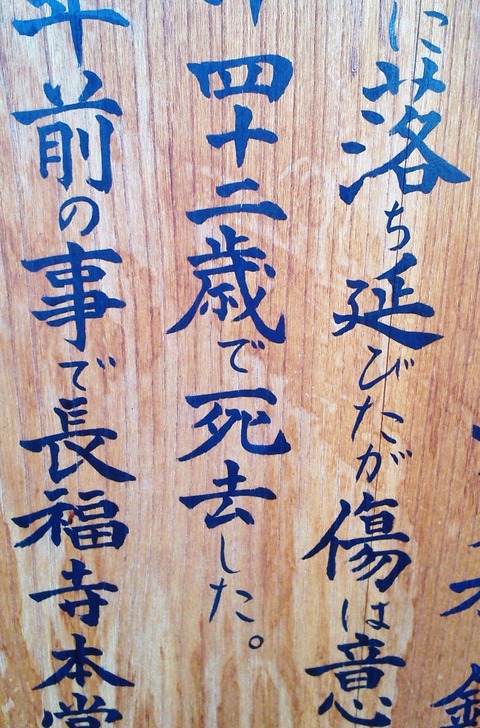 に落ち延びたが傷は意
四十二歳で死去した。
年前の事で長福寺本堂